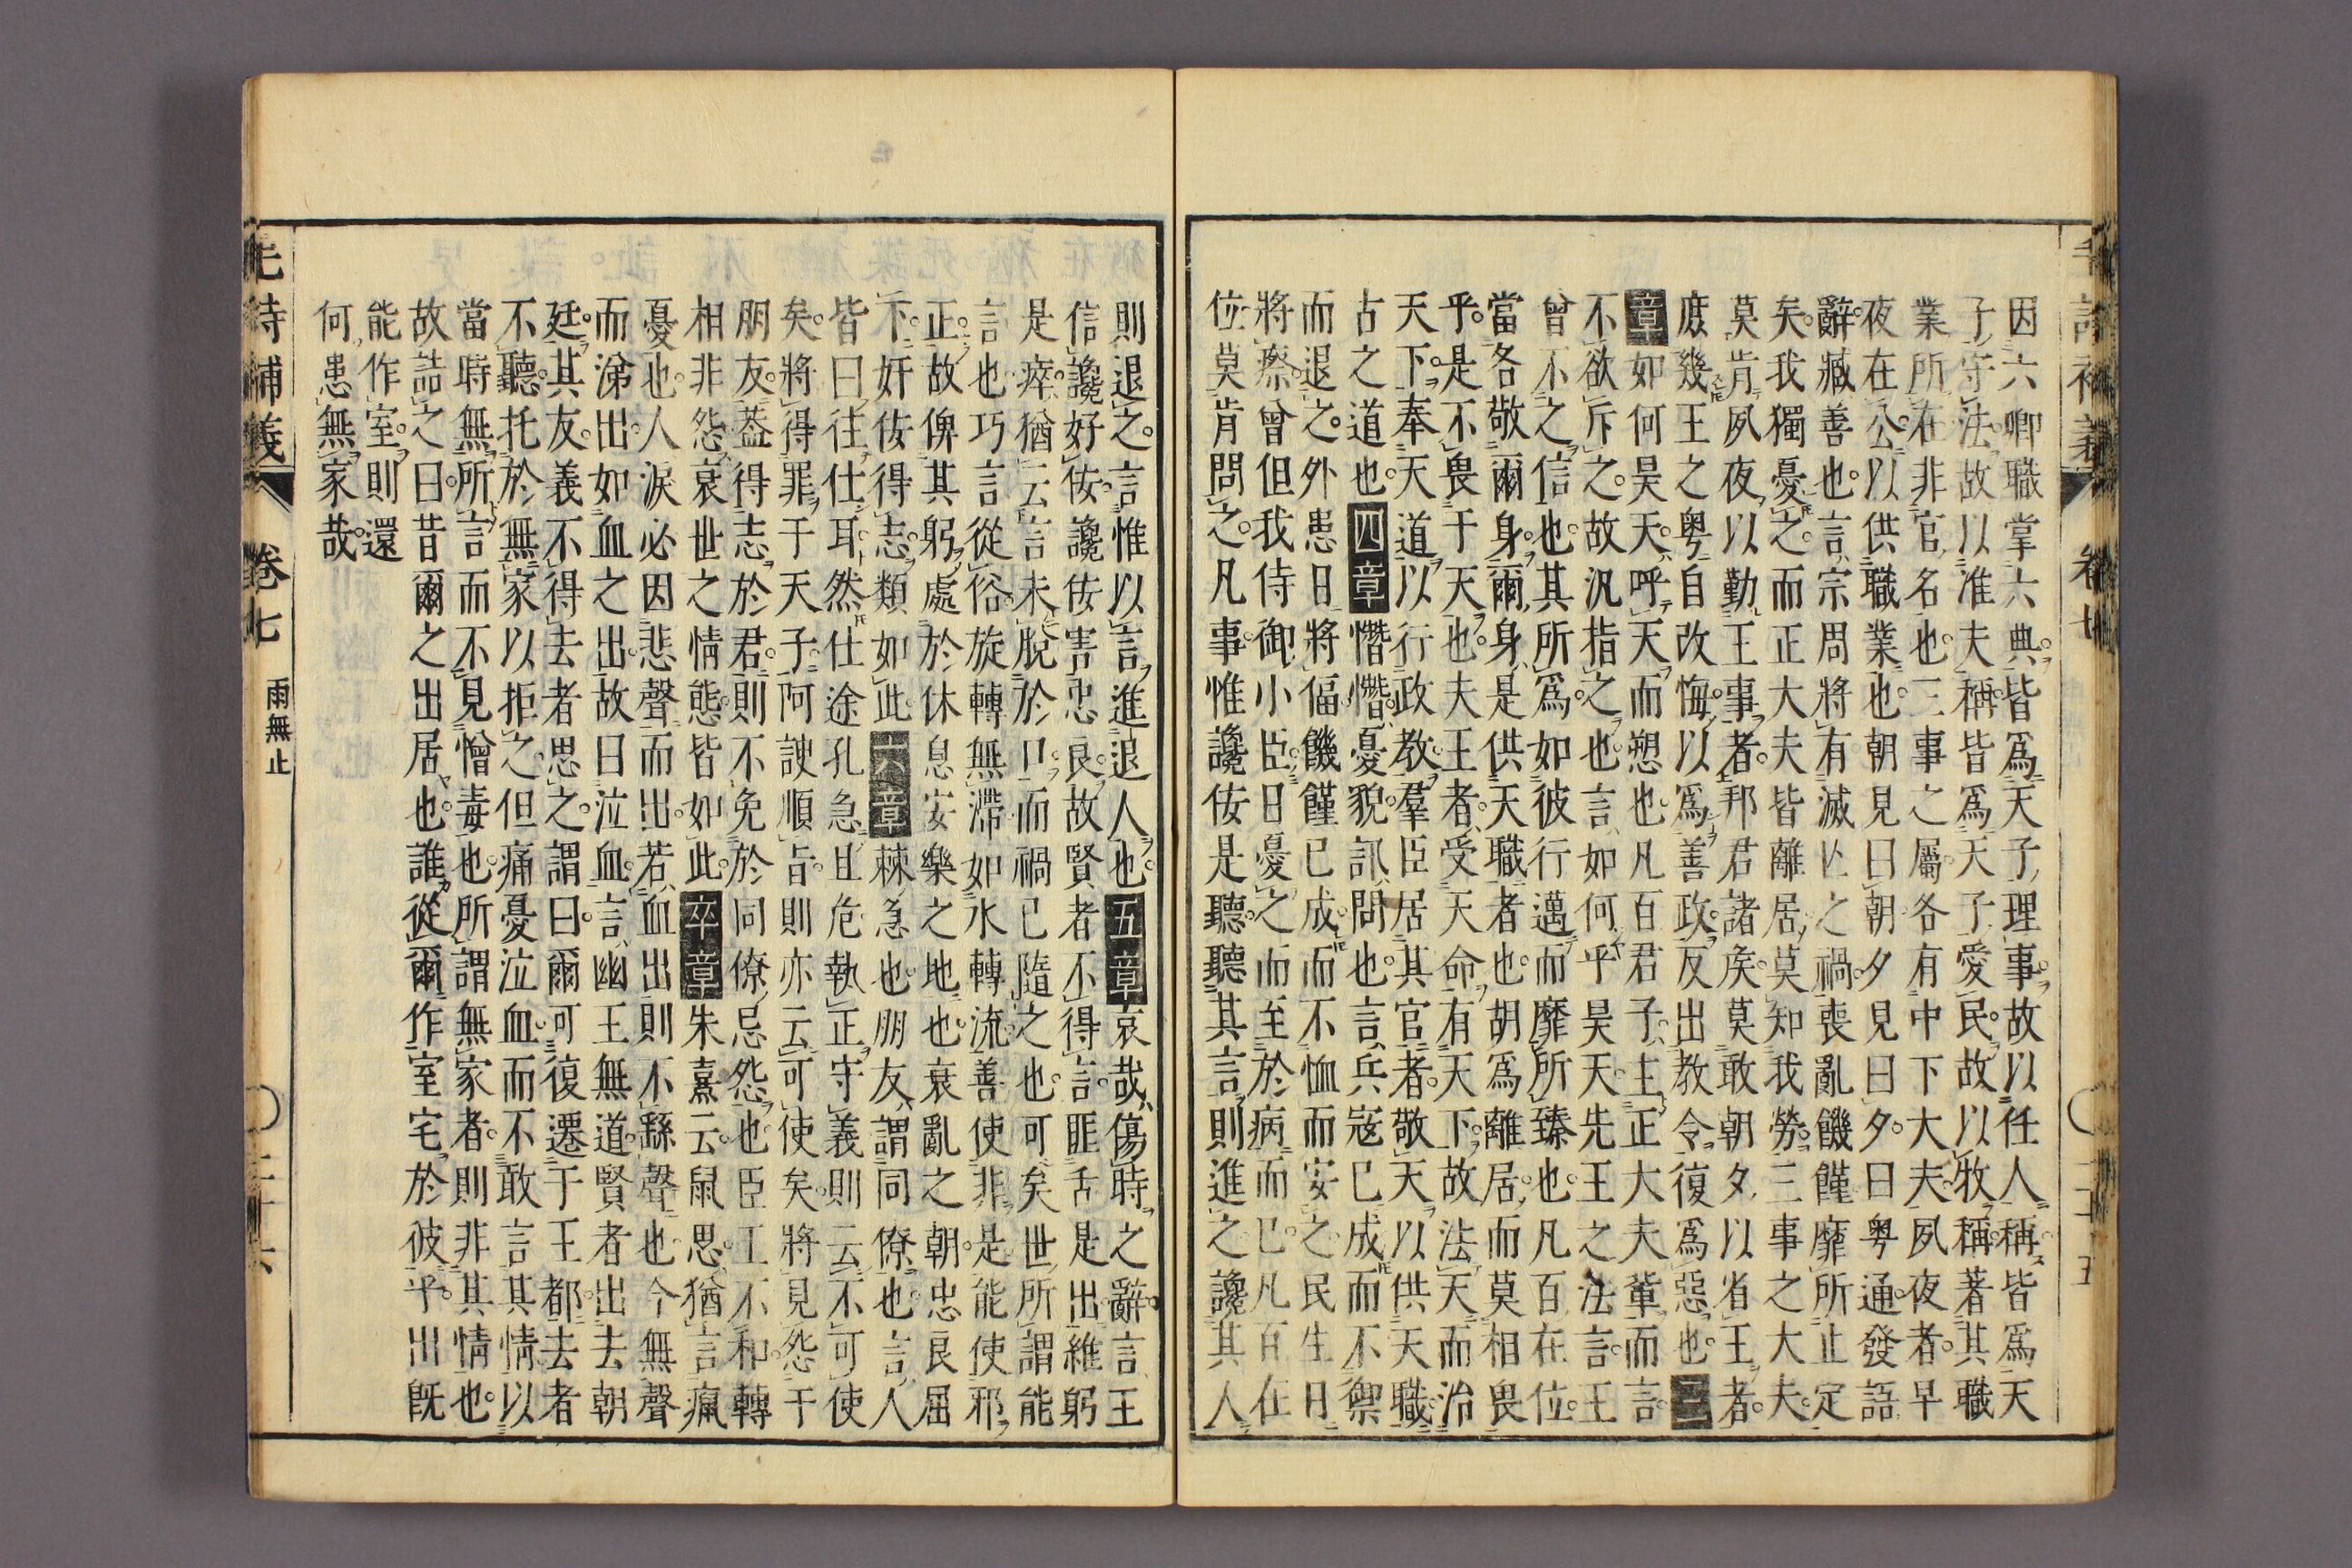 因六卿職掌六典。皆爲天子理事。故以任人稱。皆爲天
子守法。故以准夫稱。皆爲天子愛民。故以牧稱。著其職
業所在非官名也。三事之屬。各有中下大夫。夙夜者。早
夜在公。以供職業也。朝見曰朝。夕見曰夕。曰粤通。發語
辭。臧善也。言宗周將有滅亾之禍。喪亂饑饉。靡所止定
矣。我獨憂之。而正大夫皆離居。莫知我勞。三事之大夫。
莫肯夙夜以勤王事者。邦君諸矦。莫敢朝夕以省王者。
庶幾王之粤自改悔。以爲善政。反出教令。復爲惡也。三
章如何昊天。呼天而愬也。凡百君子。主正大夫軰而言。
不欲斥之。故汎指之也。言如何乎昊天。先王之法言。王
曾不之信也。其所爲。如彼行邁而靡所臻也。凡百在位。
當各敬爾身。爾身是供天職者也。胡爲離居。而莫相畏
乎。是不畏于天也。夫王者受天命有天下。故法天而治
天下。奉天道以行政教。羣臣居其官者。敬天以供天職。
古之道也。四章憯憯。憂貌。訊問也。言兵寇已成而不禦
而退之。外患日將偪。饑饉已成。而不恤而安之。民生日
將瘵。曾但我侍御小臣。日憂之而至於病而已。凡百在
位莫肯問之。凡事惟讒佞是聽。聽其言則進之。讒其人
則退之。言惟以言進退人也。五章哀哉傷時之辭。言王
信讒好佞。讒佞害忠良。故賢者不得言。匪舌是出。維躬
是瘁。猶云言未脫於口。而禍已隨之也。可矣世所謂能
言也。巧言從俗。旋轉無滯如水轉流。善使非是能使邪
正。故俾其躬處於休息安樂之地也。衰亂之朝。忠良屈
下。奸佞得志。類如此。六章棘急也。朋友謂同僚也。言人
皆曰往仕耳。然仕途孔急且危。執正守義。則云不可使
矣。將得罪于天子。阿諛順旨。則亦云可使矣。將見怨于
朋友。葢得志於君。則不免於同僚忌怨也。臣工不和。轉
相非怨。衰世之情態。皆如此。卒章朱熹云。鼠思。猶言瘋
憂也。人淚必因悲聲而出。若血出則不繇聲也。今無聲
而涕出。如血之出。故曰泣血。言幽王無道。賢者出去朝
廷。其友義不得去者思之。謂曰。爾可復遷于王都。去者
不聽。托於無家以拒之。但痛憂泣血而不敢言其情。以
當時無所言而不見憎毒也。所謂無家者。則非其情也。
故詰之曰。昔爾之出居也。誰從爾作室宅於彼乎。出既
能作室。則還
何患無家哉。
毛詩補義 卷七 雨無止